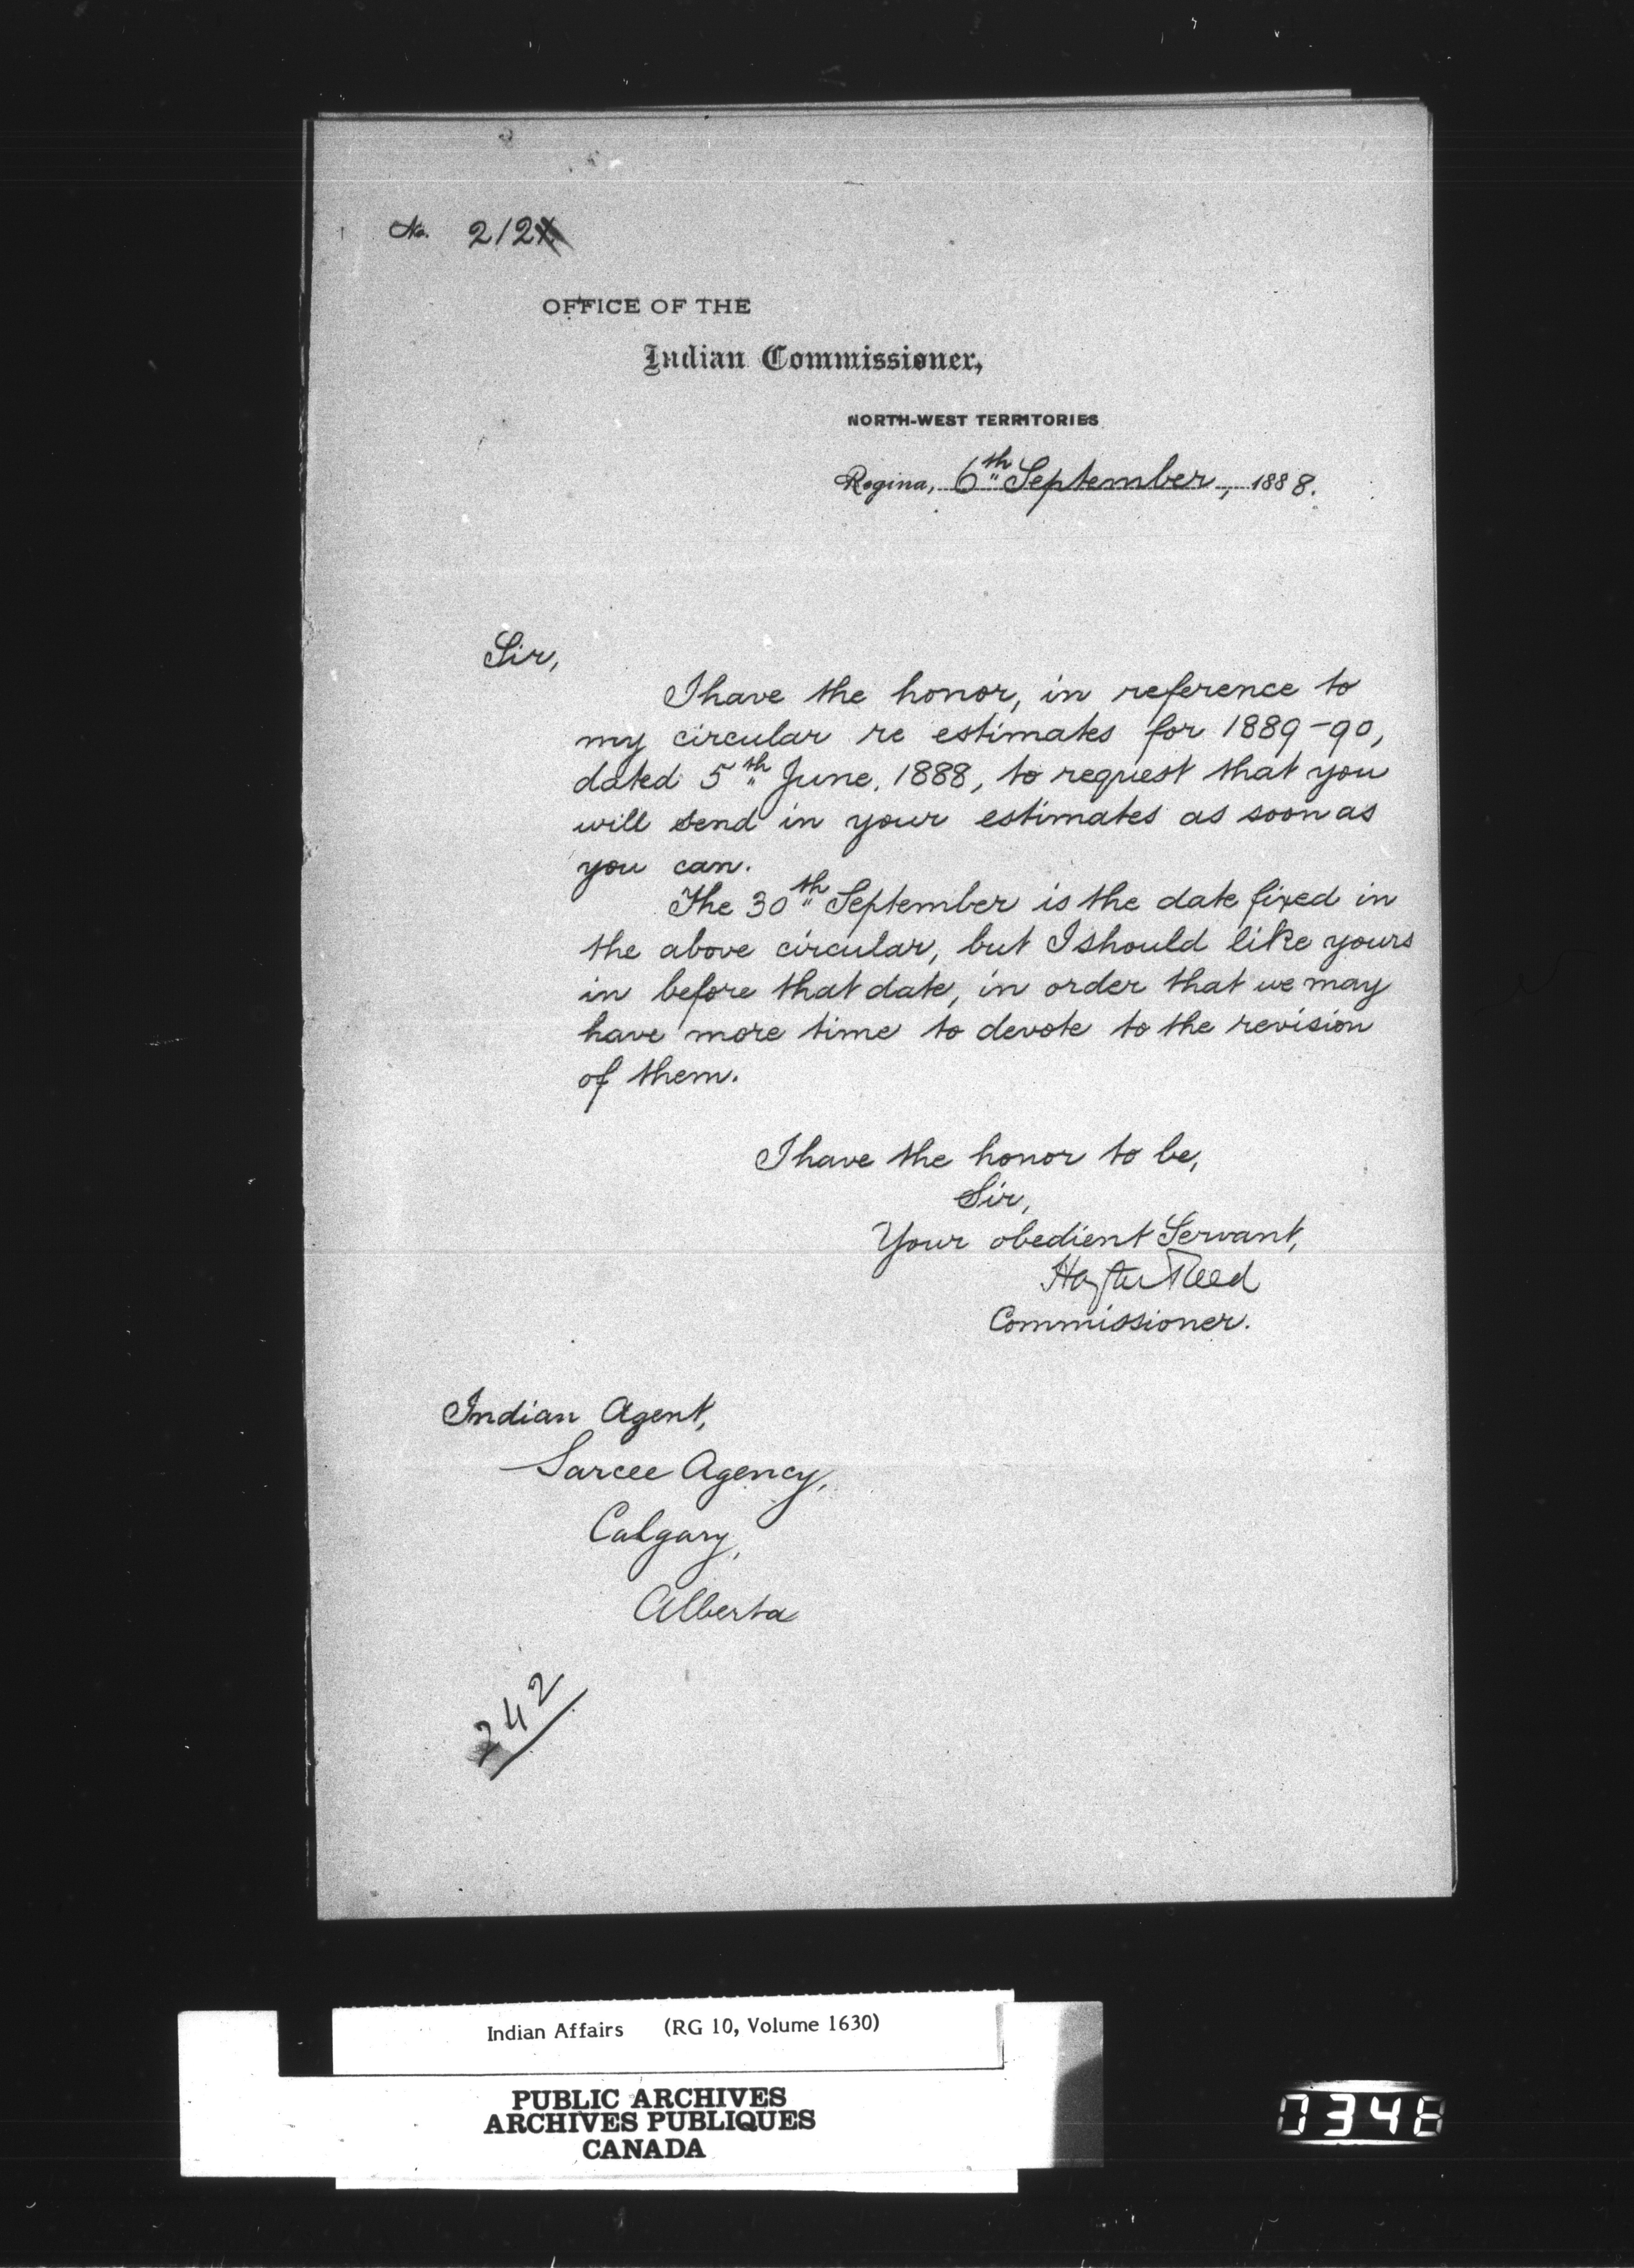 No. 212
OFFICE OF THE
Indian Commissioner,
NORTH-WEST TERRITORIES
Regina, 6th September, 1888.
Sir,
I have the honor, in reference to
my circular re estimates for 1889-90,
dated 5th June, 1888, to request that you
will send in your estimates as soon as
you can.
The 30th September is the date fixed in
the above circular, but I should like yours
in before that date, in order that we may
have more time to devote to the revision
of them.
I have the honor to be,
Sir,
Your obedient Servant,
Hayter Reed
Commissioner.
Indian Agent,
Sarcee Agency,
Calgary,
Alberta
242
Indian Affairs (RG 10, Volume 1630)
PUBLIC ARCHIVES
ARCHIVES PUBLIQUES
CANADA
0348